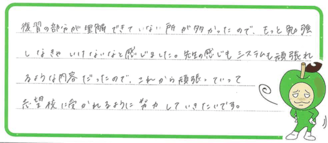 復習の部分が理解できていない所が多かったので、もっと勉強
しなきゃいけないなと感じました。先生の感じもシステムも頑張れ
るような内容だったので、これから頑張っていって
志望校に受かれるように努力していきたいです。